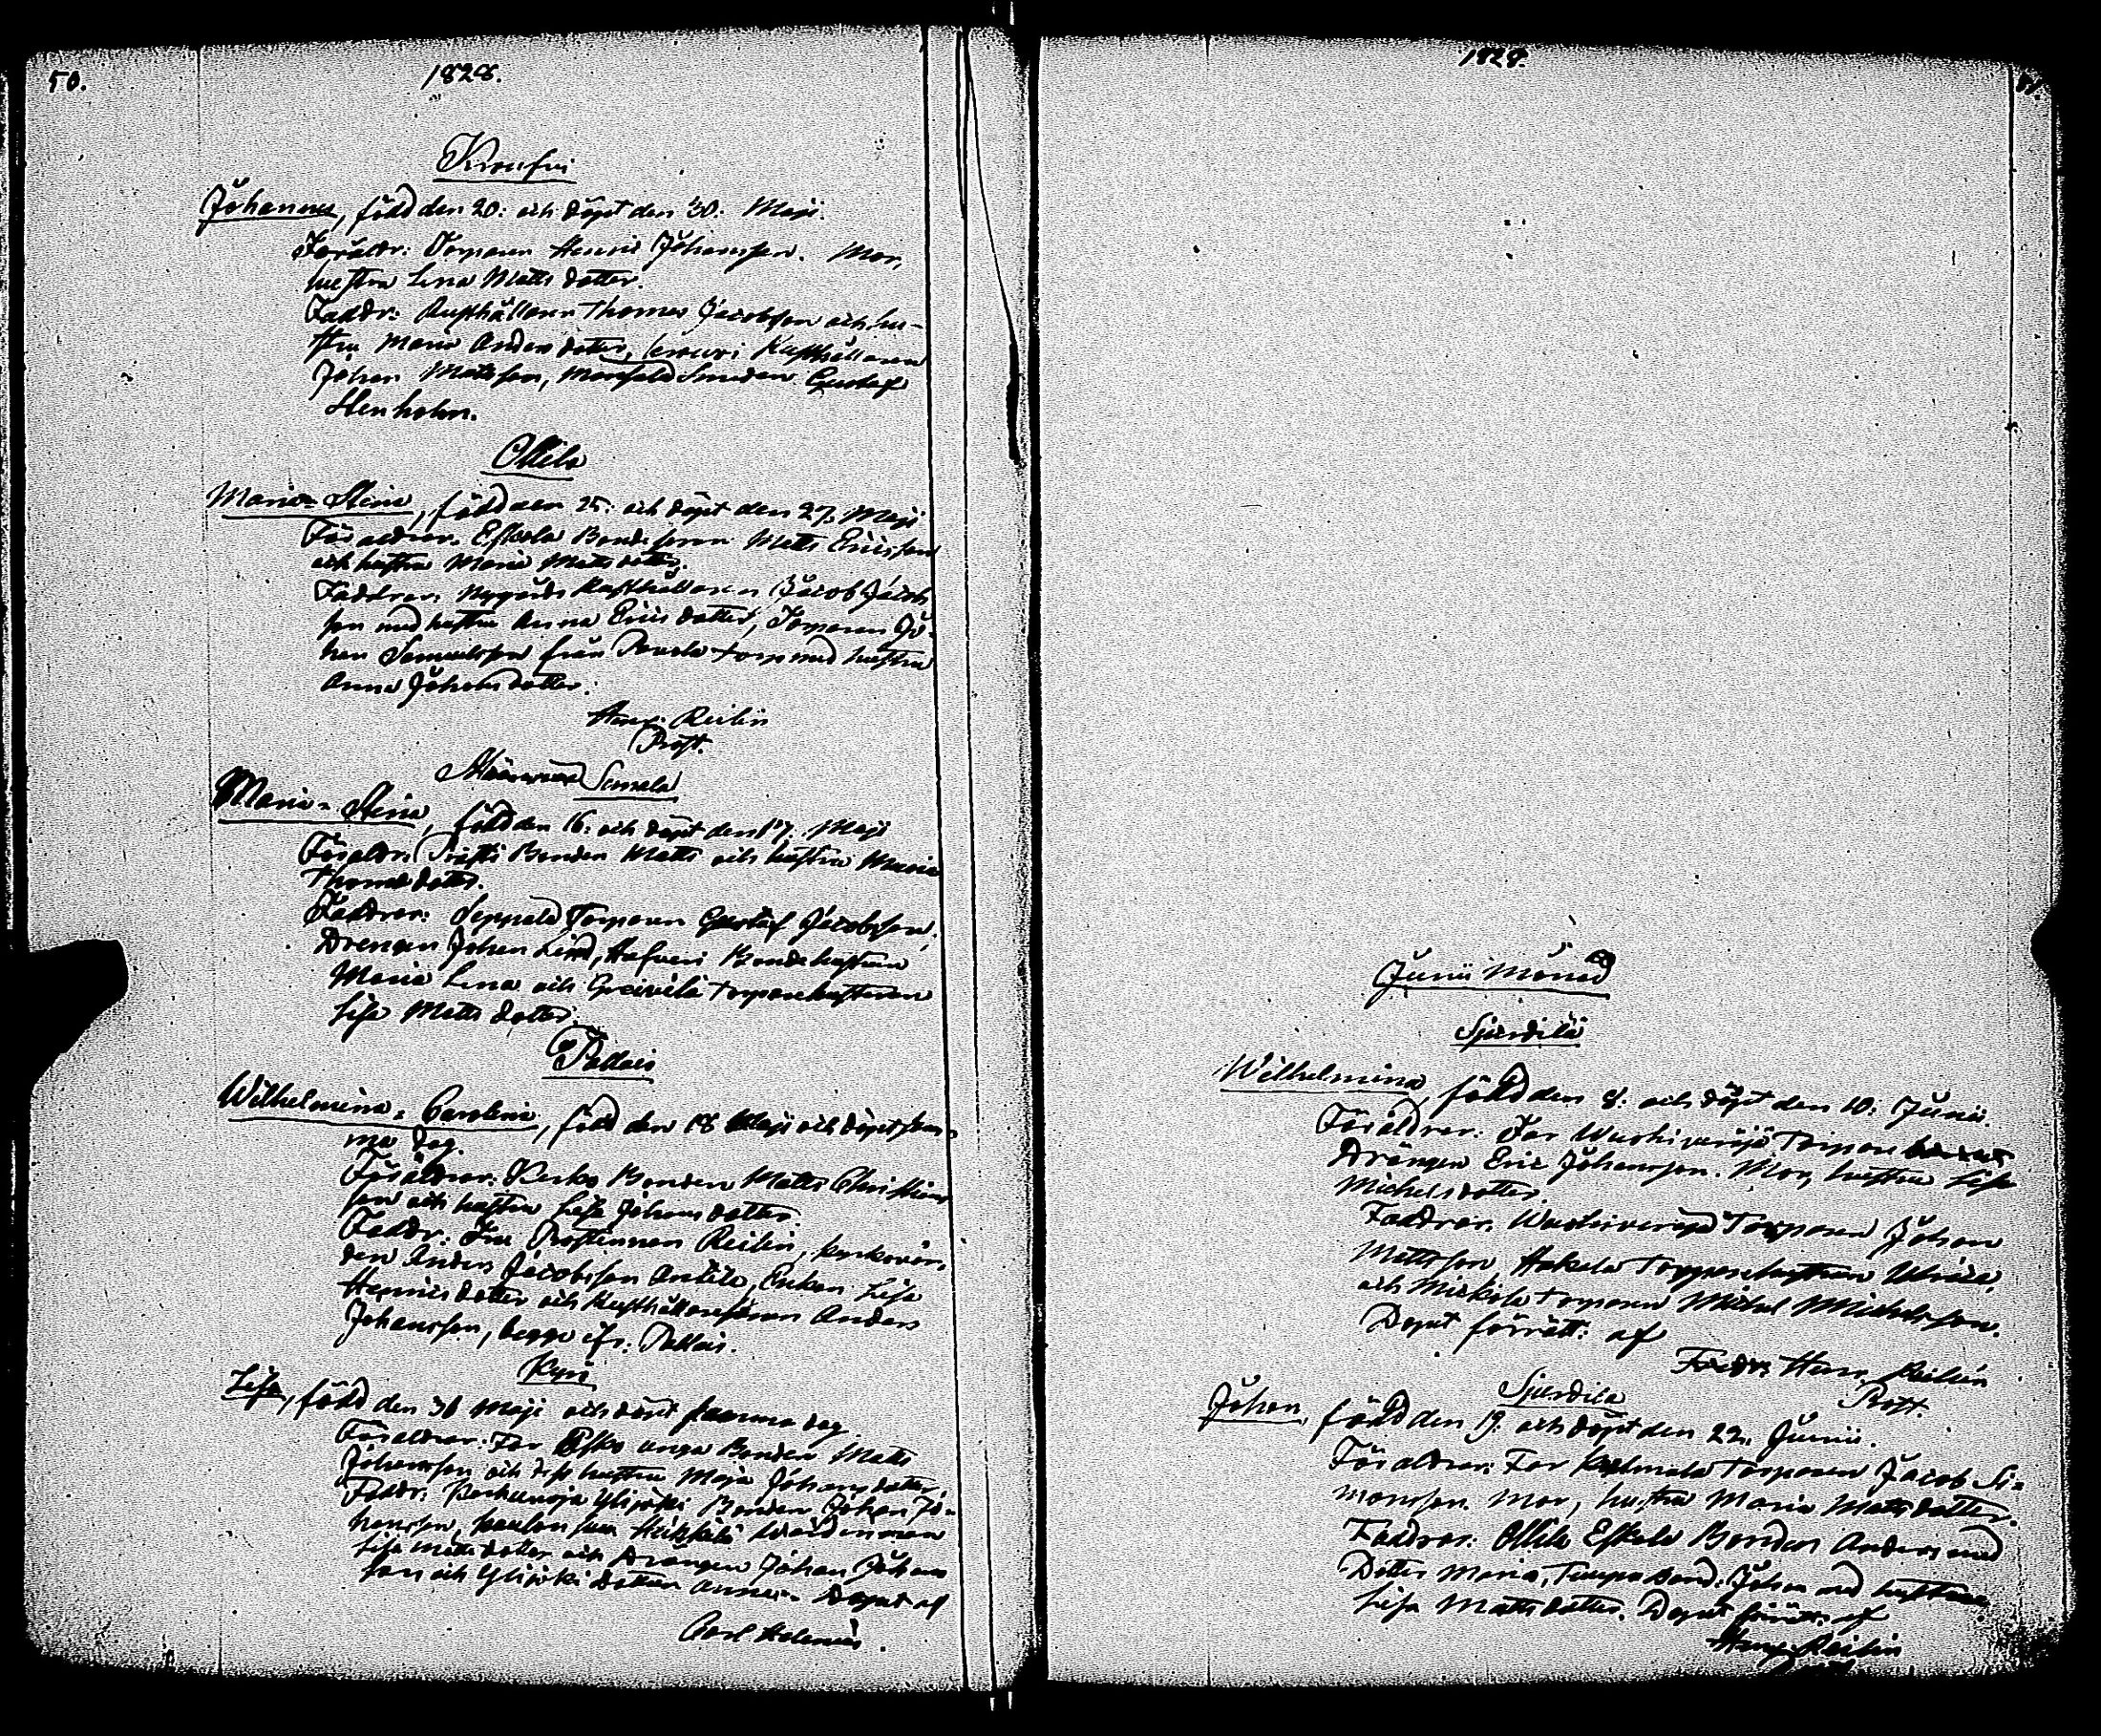 50.
1828.
Krousui
Johannes, född den 20: och döpt den 30: Maji.
Föräldr: Torparen Henric Johansson. Mor,
hustru Lena Matts dotter.
Faddr: Rusthållaren Thomas Jacobsson och hu-
stru Maria Anders dotter, Rusthållaren
Johan Mattsson, Smeden Gustaf
Stenholm.
Ollila
Maria Stina, född den 25: och döpt den 27. Maji
Föräldrar. Eskola Bonde sonen Matts Ericsson
och hustru Maria Matts dotter.
Faddrar: Nygårds Rusthållaren Jacob Jacobs
son med hustru Anna Erics dotter, Torparen Jo-
han Samuelsson från torp med hustru
Anna Johans dotter.
Henr: Reilin
Prost.
Semala
Maria Stina, född den 16: och döpt den 17. Maji
Föräldr: Bonden Matts och hustru Maria
Thomas dotter.
Faddrar: Seppälä Torparen Gustaf Jacobsson,
Drengen Johan Lind, Bonde hustrun
Maria Lena och torpare hustrun
Lisa Matts dotter.
Pallais
Wilhelmina Carolina, född den 18 Maji och döpt sam-
ma dag.
Föräldrar: Kesko Bonden Matts Christians
son och hustru Lisa Johans dotter.
Faddr: Fru Prostinnan Reilin, kyrkovär-
den Anders Jacobsson Anttila, Enkan Lisa
Henrics dotter och Rusthållaresonen Anders
Johansson, begge ifr. Pallais.
Kyrö
Lisa, född den 31 Maji och döpt samma dag
Föräldrar: Far Bonden Matts
Johansson och dess hustru Maja Johans dotter.
Faddr: Ylijoki Bonden Johan Jo-
hansson,
Lisa Matts dotter och Drängen Johan Johans
son och Ylijoki dottren Anna. Döpt af
Carl Helenius.
1828.
51.
Junii Månad
Sjundilä
Wilhelmina, född den 8: och döpt den 10: Junii.
Föräldrar: Far Torpare
Drängen Eric Johansson. Mor, hustru Lisa
Michelsdotter.
Faddrar. Torparen Johan
Mattsson Hakala Torparehustrun Ulrica,
och Mickola torparen Michel Michelsson.
Dopet förrätt: af
Henr. Reilin
Prost.
Sjundilä
Johan, född den 19: och döpt den 22. Junii.
Föräldrar: Far torparen Jacob Si-
monsson. Mor, hustru Maria Matts dotter.
Faddrar: Ollila Eskola Bonden Anders med
Dotter Maria, Bond: Johan med hustru
Lisa Matts dotter. Dopet förrätt: af
Henr: Reilin